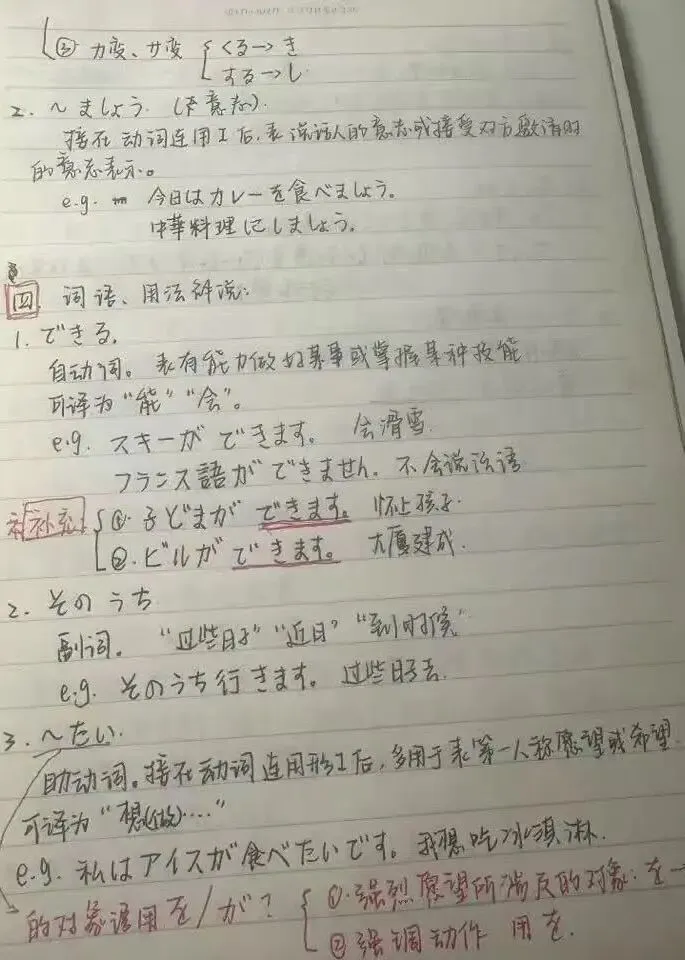 ③ カ変、サ変 { くる→き
する→し
2. ～ましょう. (意志).
接在动词连用I后,表说话人的意志或接受对方邀请时
的意志表示。
e.g. 今日はカレーを食べましょう。
中華料理にしましょう。
四 词语、用法解说:
1. できる.
自动词。表有能力做好某事或掌握某种技能
可译为"能""会"。
e.g. スキーができます。 会滑雪.
フランス語ができません. 不会说法语
补充 { ①. 子どまができます。 怀上孩子.
②. ビルができます。 大厦建成.
2. そのうち
副词。 "过些日子" "近日" "到时候"
e.g. そのうち行きます。 过些日子去.
3. ～たい.
助动词。接在动词连用形I后,多用于表第一人称愿望或希望.
可译为"想(做)...."
e.g. 私はアイスが食べたいです。我想吃冰淇淋.
的对象语用を/が? { ①.强烈愿望所涉及的对象:を
②强调动作 用を.